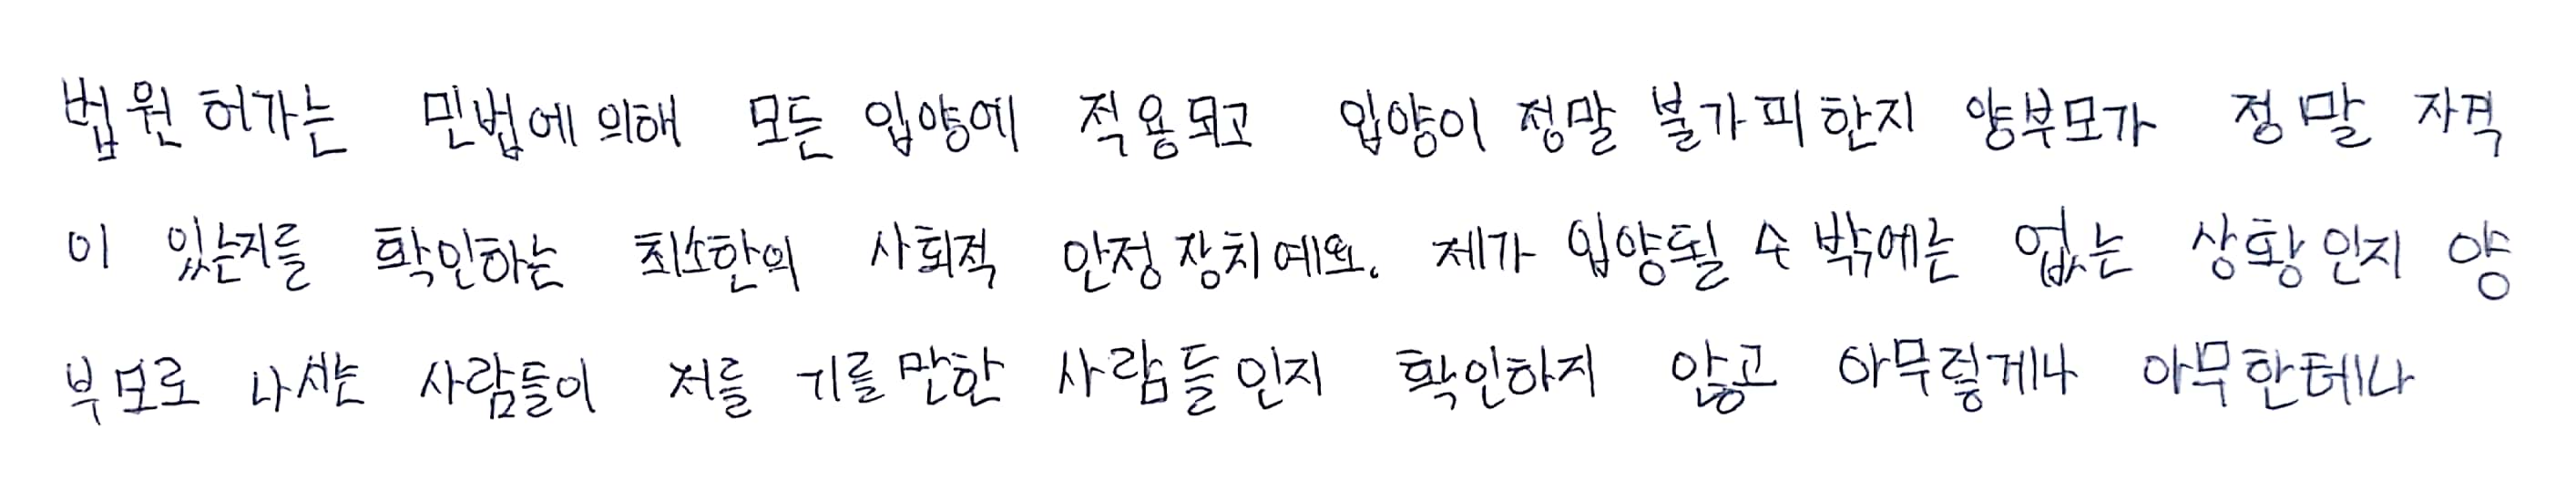 법원 허가는 민법에 의해 모든 입양에 적용되고 입양이 정말 불가피한지 양부모가 정말 자격
이 있는지를 확인하는 최소한의 사회적 안정장치예요. 제가 입양될 수 밖에는 없는 상황인지 양
부모로 나서는 사람들이 저를 기를 만한 사람들인지 확인하지 않고 아무렇게나 아무한테나